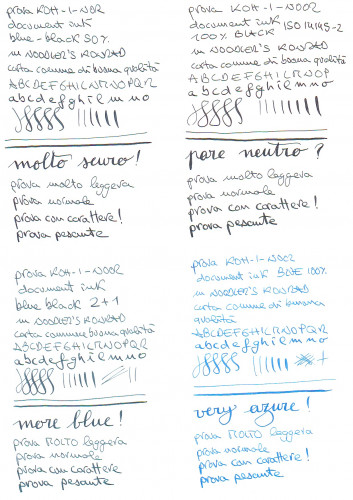 prova KOH-I-NOOR
document ink
blue-black 50%
in NOODLER'S KONRAD
carta comune di buona qualità
ABCDEFGHILMNOPQR
abcdefghilmno
SSSSS
molto scuro!
prova molto leggera
prova normale
prova con carattere!
prova pesante
prova KOH-I-NOOR
document ink ISO 14145-2
100% BLACK
in NOODLER'S KONRAD
carta comune di buona qualità
ABCDEFGHILMNOP
abcdefghilmno
SSSSS
pare neutro?
prova molto leggera
prova normale
prova con carattere!
prova pesante
prova KOH-I-NOOR
document ink
blue black 2+1
in NOODLER'S KONRAD
carta comune buona qualità
ABCDEFGHILMNOPQR
abcdefghilmno
SSSSS
more blue!
prova MOLTO leggera
prova normale
prova con carattere!
prova pesante
prova KOH-I-NOOR
document ink BLUE 100%
in NOODLER'S KONRAD
carta comune di buona
qualità
ABCDEFGHILMNOPQR
abcdefghilmno
SSSSS
very azure!
prova MOLTO leggera
prova normale
prova con carattere!
prova pesante